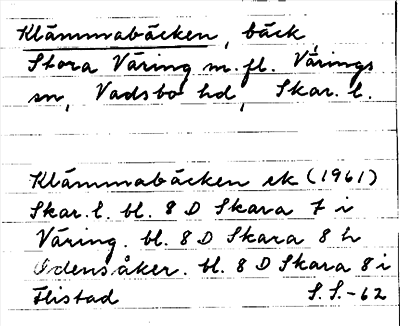 Klämmabäcken, bäck,
Stora Väring m. fl. Värings
sn, Vadsbo hd, Skar. l.
Klämmabäcken ek (1961)
Skar. l. bl. 8 D Skara 7 i
Väring. bl. 8 D Skara 8 h
Odensåker. bl. 8 D Skara 8 i
Flistad S. S. -62